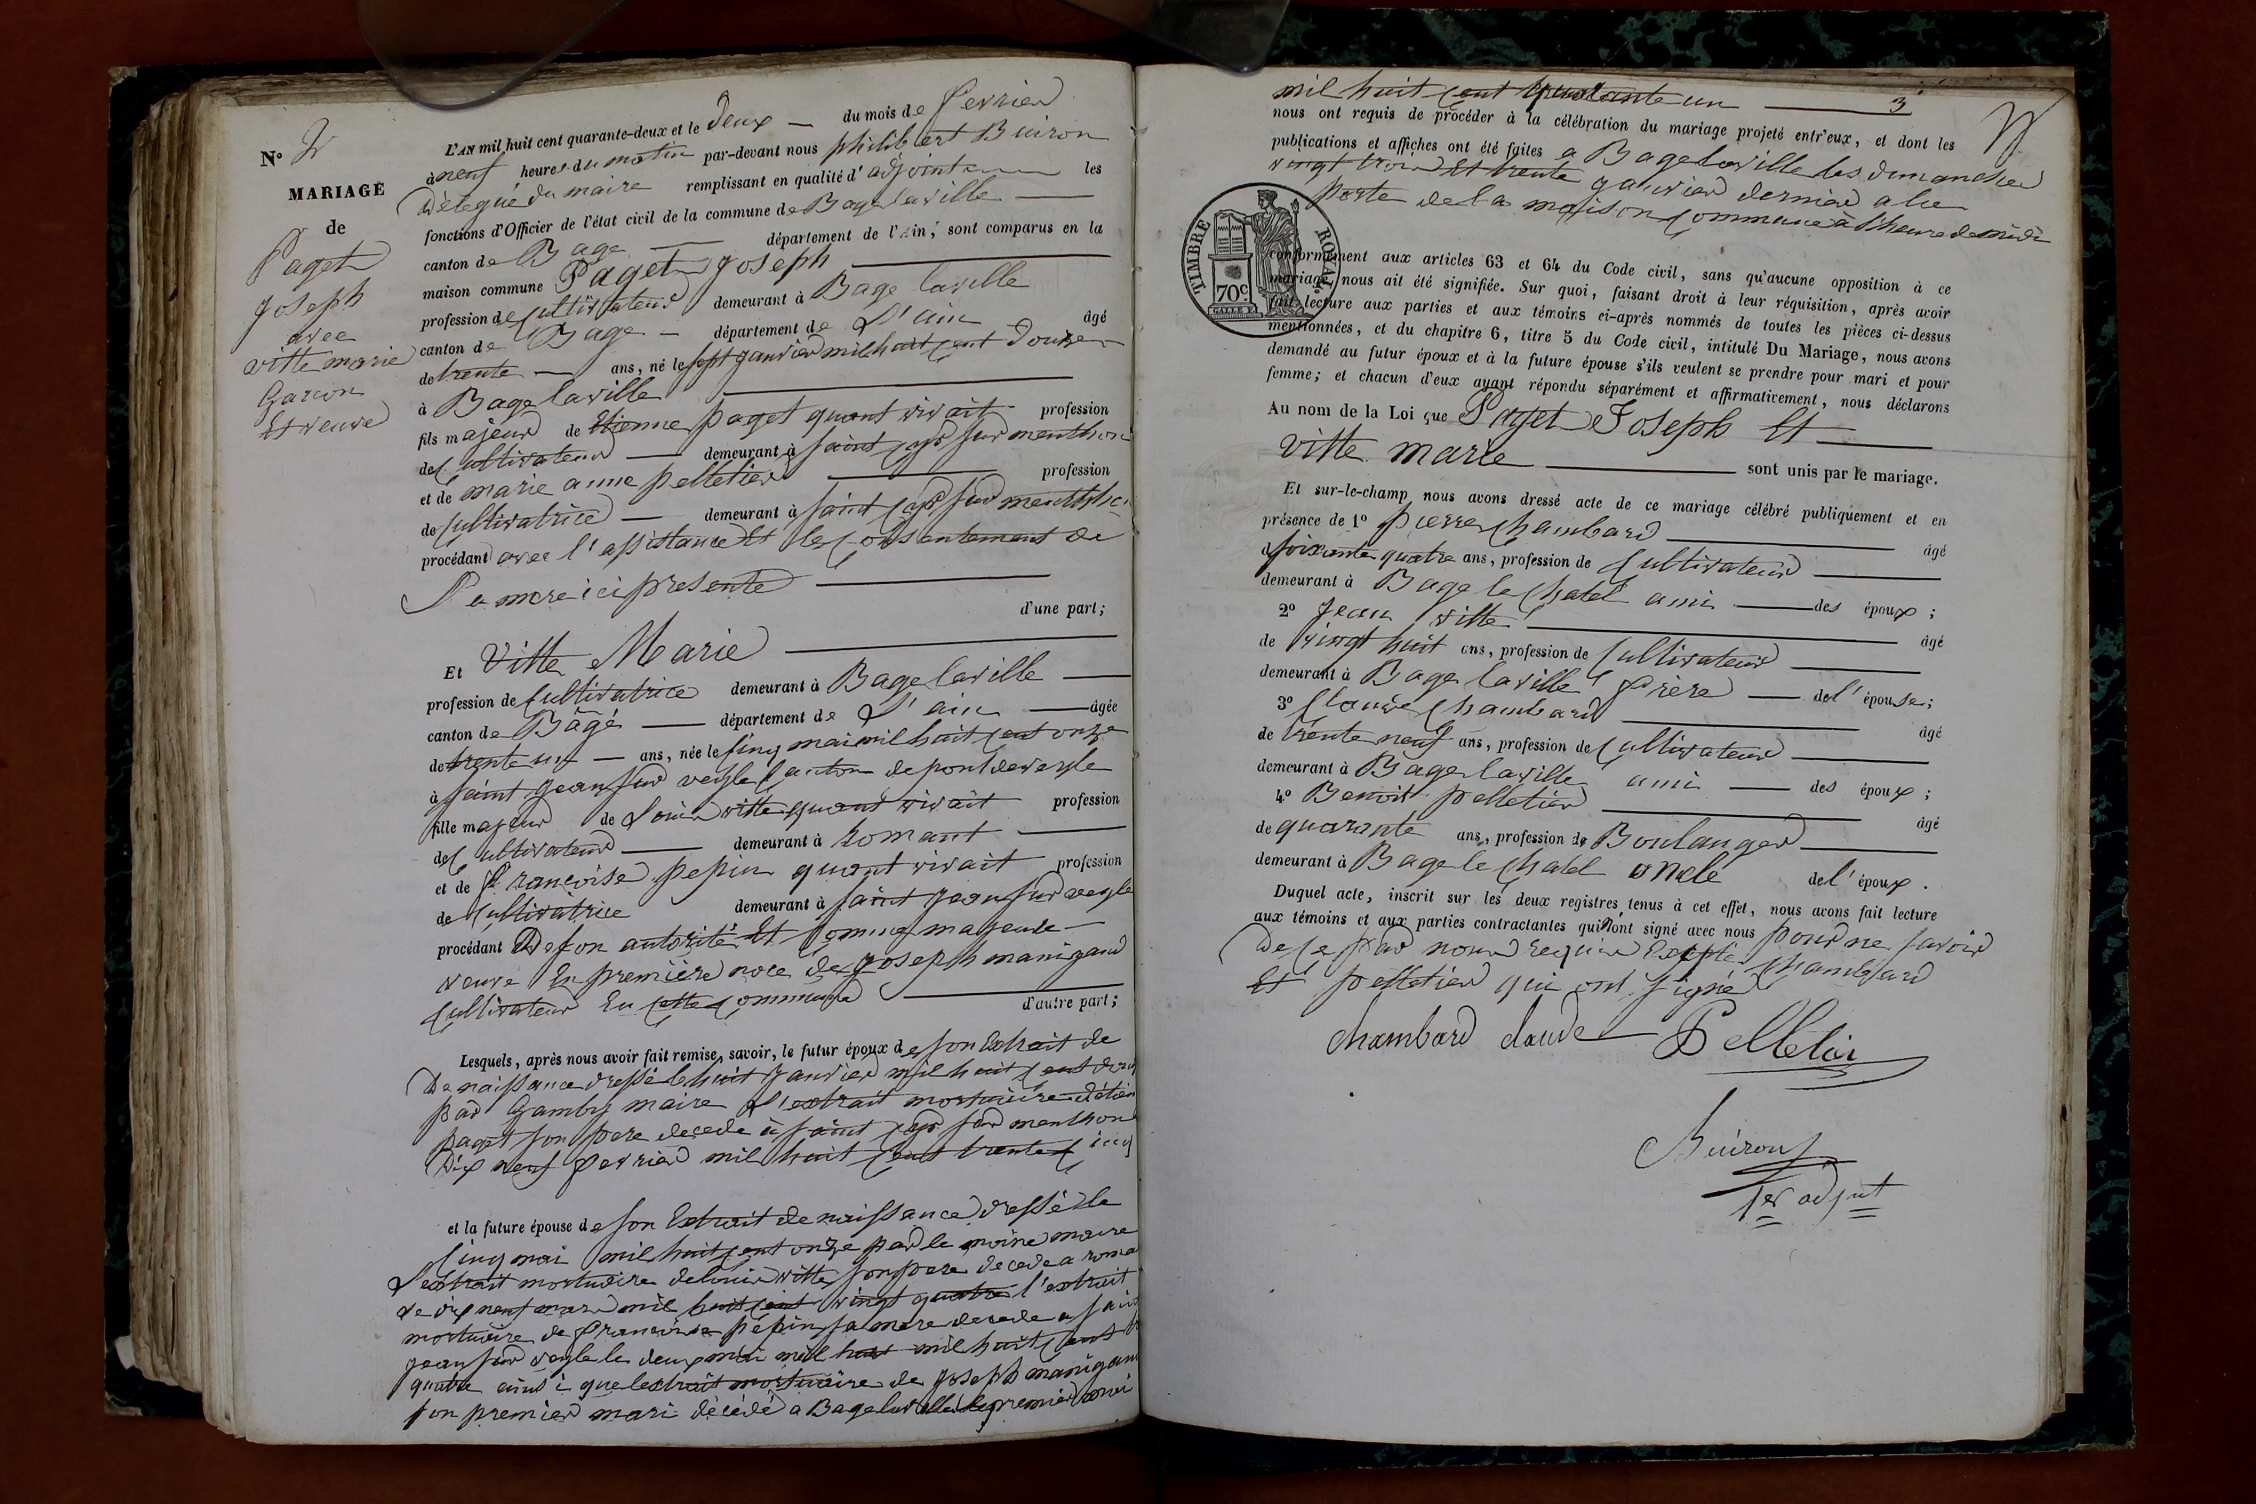 N° 2
MARIAGE
de
Paget
Joseph
avec
vitte marie
Garcon
Et veuve
L'AN mil huit cent quarante-deux et le Deux du mois de fevrier
à neuf heures du matin par-devant nous philibert Buiron
Délégué du maire remplissant en qualité d'adjoint les
fonctions d'Officier de l'état civil de la commune de Bage laville
canton de Bage département de l'Ain, sont comparus en la
maison commune Paget Joseph
profession de Cultivateur demeurant à Bage laville
canton de Bage département de L'ain âgé
de trente ans, né le sept janvier mil huit cent Douze
à Bage laville
fils majeur de Etienne paget quant vivait profession
de Cultivateur demeurant à saint cyr sur menthon
et de marie anne pelletier profession
de Cultivatrice demeurant à saint cyr sur menthon
procédant avec l'assistance Et le Consentement de
Sa mere ici presente
d'une part;
Et Vitte Marie
profession de Cultivatrice demeurant à Bage laville
canton de Bâgé département de L'ain âgée
de trente un ans, née le cinq mai mil huit cent onze
à saint jean sur veyle Canton de pont de veyle
fille majeur de Louis vitte quant vivait profession
de Cultivateur demeurant à romant
et de Francoise pepin quant vivait profession
de Cultivatrice demeurant à saint jean sur veyle
procédant De son autorité Et Comme majeure
veuve En première noce de joseph manigand
Cultivateur En Cette Commune d'autre part;
Lesquels, après nous avoir fait remise, savoir, le futur époux de son Extrait de
De naissance dressé le huit janvier mil huit cent douze
par Gamby maire L'extrait mortuaire d'étien
paget son pere decede à saint cyr sur menthon
Dix neuf fevrier mil huit cent trente cinq
et la future épouse de son Extrait de naissance dressé le
Cinq mai mil huit cent onze par le moine maire
L'extrait mortuaire de louis vitte son pere decede a roma
le dix neuf mars mil huit cent vingt quatre l'extrait
mortuaire de francoise pépin sa mere decede a saint
jean sur veyle le deux mai mil huit mil huit cent
quatre ainsi que lextrait mortuaire de joseph manigand
son premier mari décédé a Bage laville le premier mai
mil huit cent quarante un
3
nous ont requis de procéder à la célébration du mariage projeté entr'eux, et dont les
publications et affiches ont été faites a Bage laville les dimanches
vingt trois Et trente janvier dernier a la
porte de la maison Commune à l'heure de midi
TIMBRE ROYAL
70c.
conformément aux articles 63 et 64 du Code civil, sans qu'aucune opposition à ce
mariage nous ait été signifiée. Sur quoi, faisant droit à leur réquisition, après avoir
fait lecture aux parties et aux témoins ci-après nommés de toutes les pièces ci-dessus
mentionnées, et du chapitre 6, titre 5 du Code civil, intitulé Du Mariage, nous avons
demandé au futur époux et à la future épouse s'ils veulent se prendre pour mari et pour
femme; et chacun d'eux ayant répondu séparément et affirmativement, nous déclarons
Au nom de la Loi que Paget Joseph Et
vitte marie sont unis par le mariage.
Et sur-le-champ nous avons dressé acte de ce mariage célébré publiquement et en
présence de 1° pierre Chambard âgé
de soixante quatre ans, profession de Cultivateur
demeurant à Bage le Chatel ami des époux;
2° jean vitte âgé
de vingt huit ans, profession de Cultivateur
demeurant à Bage laville frère de l'épouse;
3° Claude Chambard âgé
de trente neuf ans, profession de Cultivateur
demeurant à Bage laville ami des époux;
4° Benoit pelletier âgé
de quarante ans, profession de Boulanger
demeurant à Bage le Chatel oncle de l'époux.
Duquel acte, inscrit sur les deux registres tenus à cet effet, nous avons fait lecture
aux témoins et aux parties contractantes qui n'ont signé avec nous pour ne savoir
De Ce par nous requis Excepté Chambard
Et pelletier qui ont signé
chambard claude Pelletier
Buiron
1er adjnt